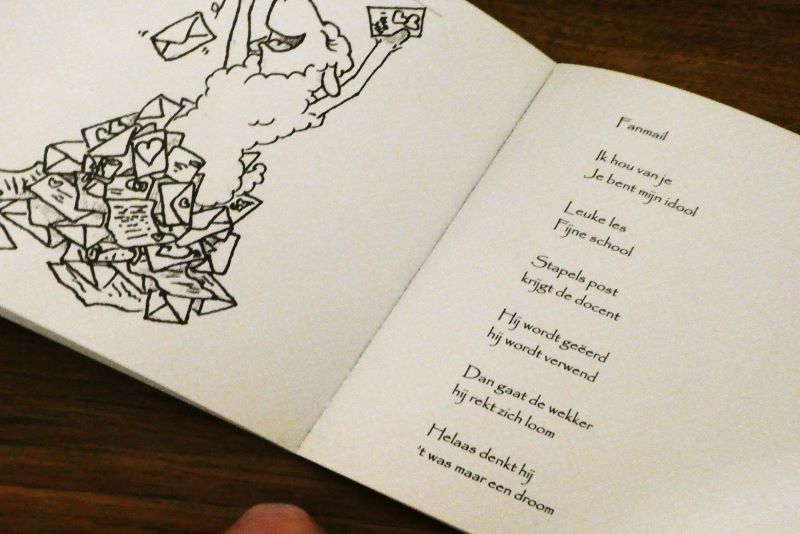 Fanmail
Ik hou van je
Je bent mijn idool
Leuke les
Fijne school
Stapels post
krijgt de docent
Hij wordt geëerd
hij wordt verwend
Dan gaat de wekker
hij rekt zich loom
Helaas denkt hij
't was maar een droom